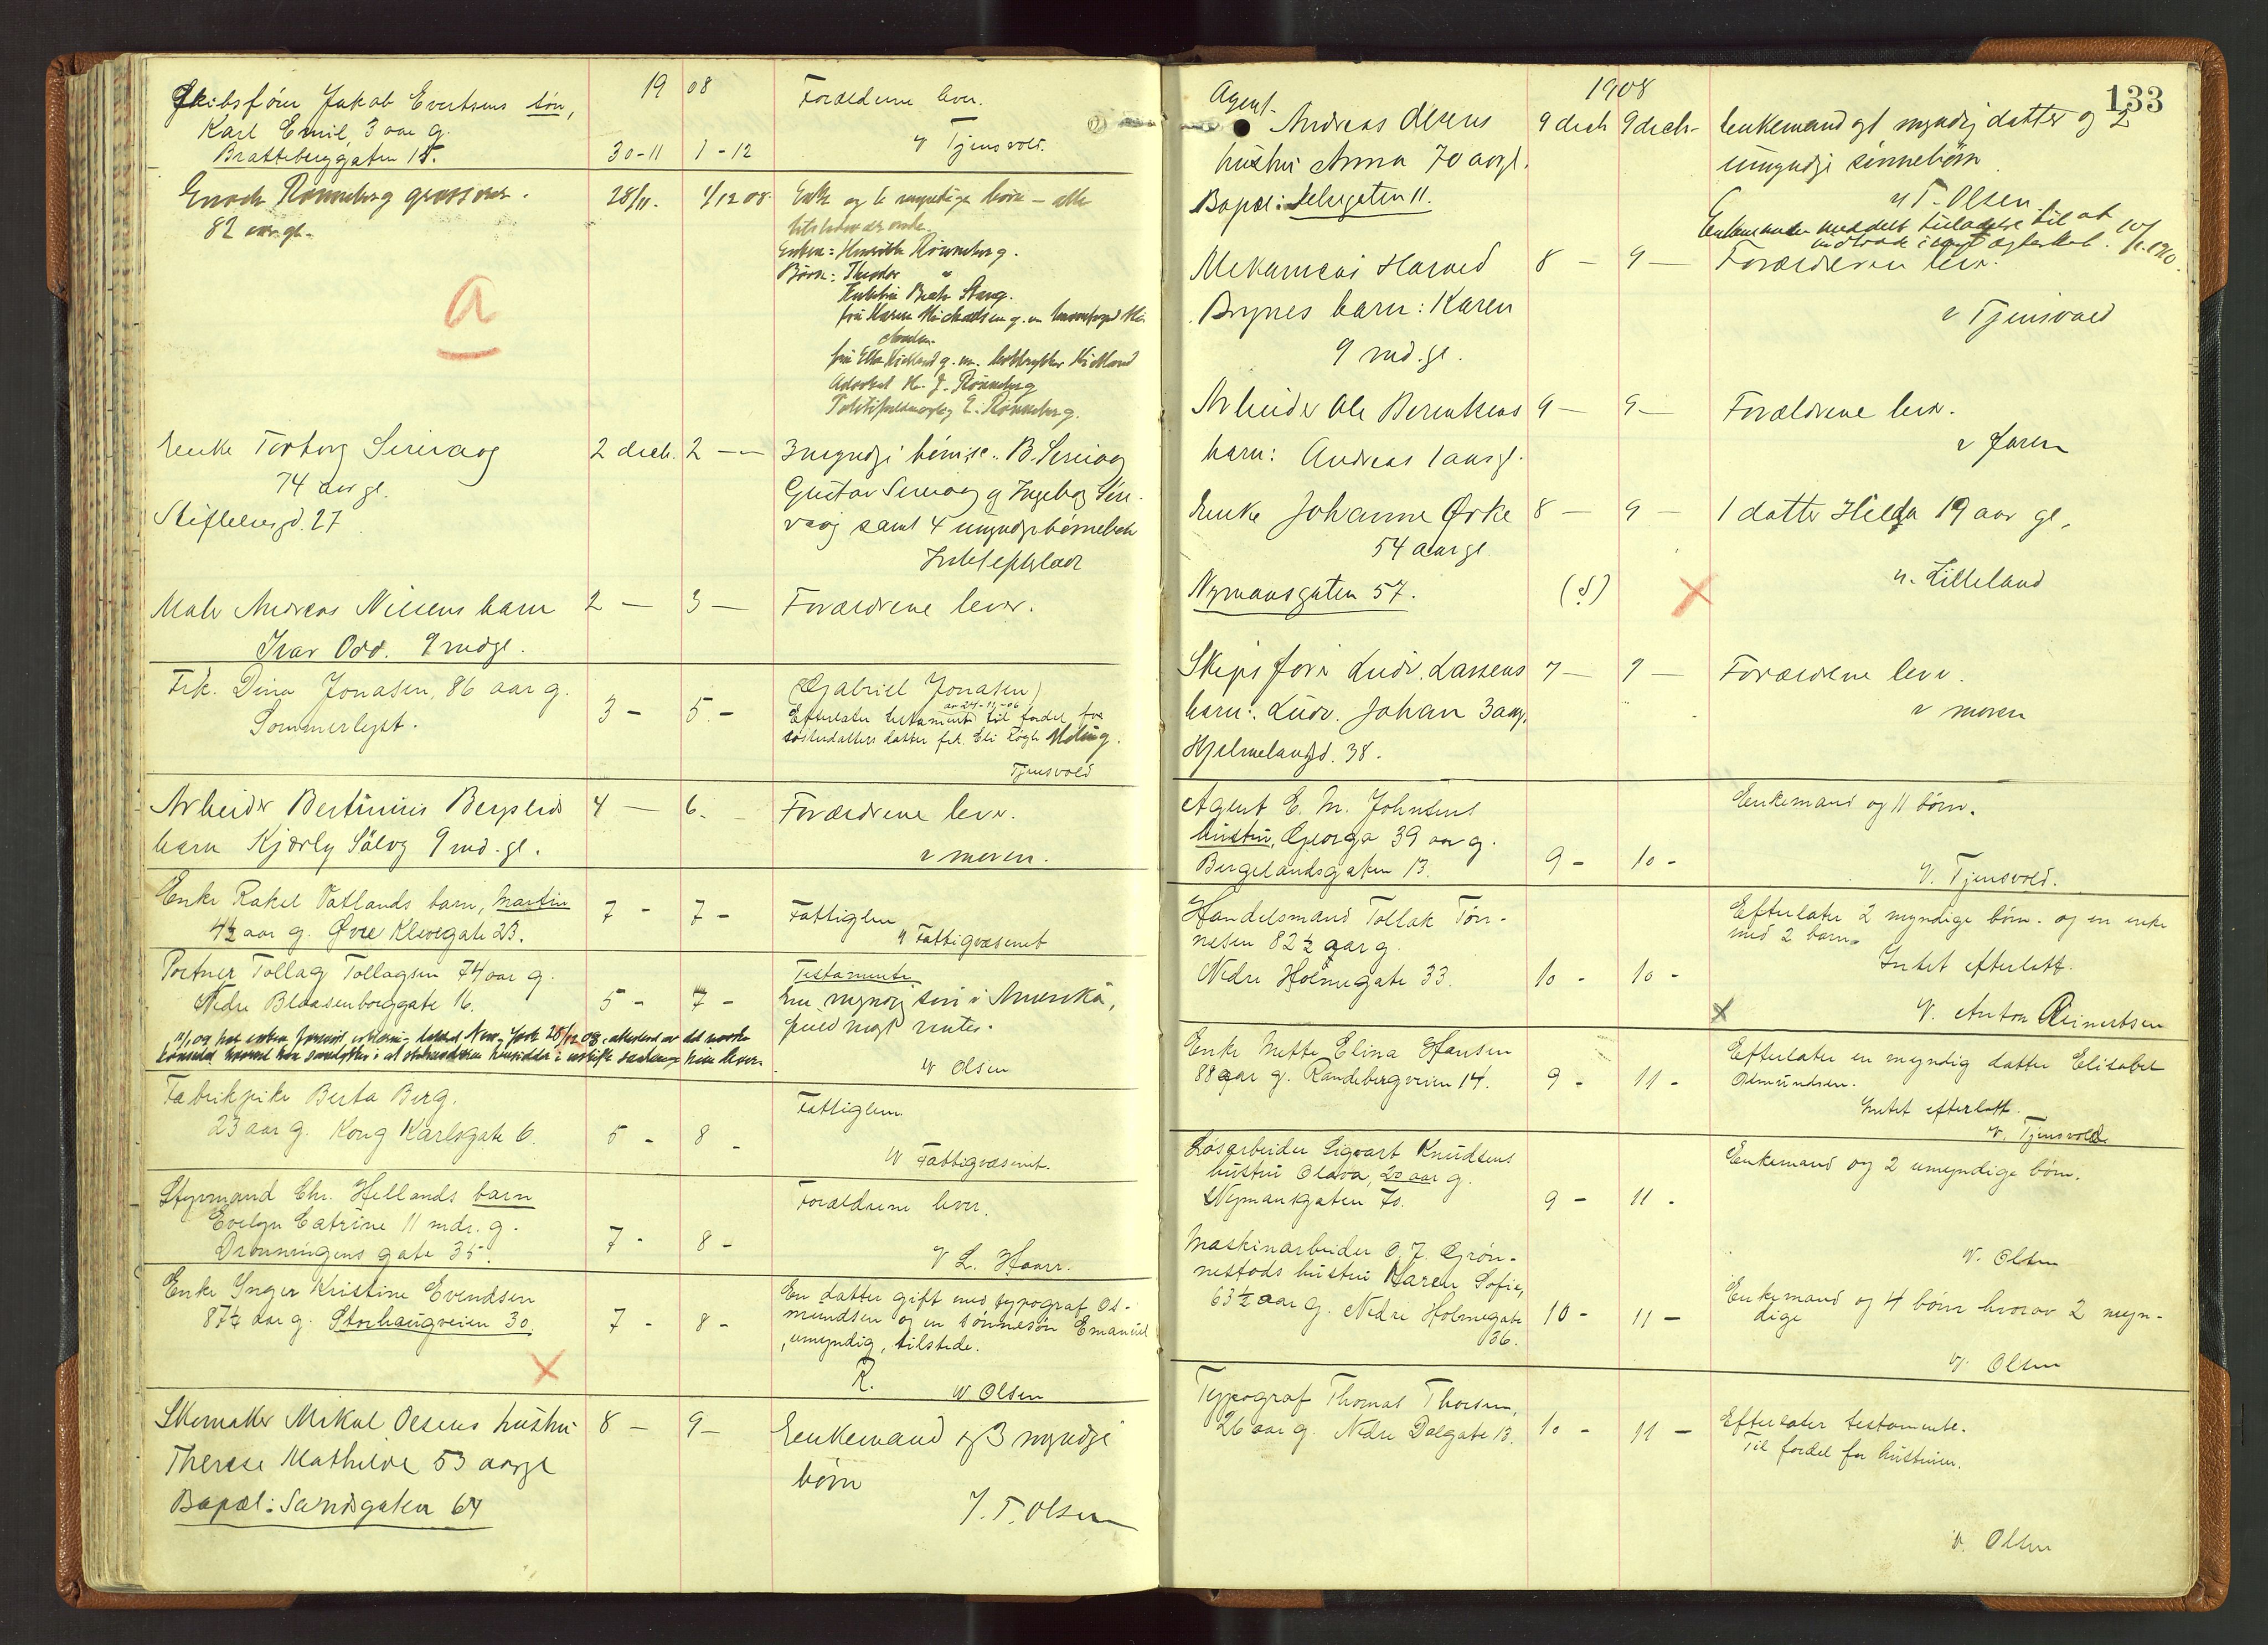 19 08
Skibsfører Jakob Evertsens søn,
Karl Emil, 3 aar g.
Bratteberggaten 15. 30-11 1-12
Forældrene lever.
v Tjensvold.
Enoch Rønneberg grosserer.
82 aar gl.
28/11. 4/12 08.
Enke og 6 myndige børn - alle
tilstedeværende.
Enken: Henrikke Rønneberg.
Børn: Theodor "
Advokat H. J. Rønneberg
Politifuldmægtig E. Rønneberg.
a
Enke Torborg Sirevaag
74 aar gl.
2 decb. 2 —
3 myndige børn: B. Sirevaag
Gustav Sirevaag og Ingeborg Sire-
vaag samt 4 umyndige børnebørn
Intet efterladt
Maler Andreas Nilsens barn
Ivar Odd. 9 mdgl.
2 — 3 —
Forældrene lever.
Frk. Dina Jonasen, 86 aar g.
Sommerlyst.
3 - 5. -
(Gabriel Jonasen)
av 24-11-06
Efterlater testamente til fordel for
søsterdatters datter frk. Eli Høgh Meling.
Tjensvold
Arbeider Bertinius Bergslids
barn Kjærly Sölvy 9 md. gl.
4 — 6.
Forældrene lever.
v moren.
Enke Rakel Vatlands barn, Martin
4½ aar g. Øvre Klevegate 23.
7 - 7 -
Fattiglem
v Fattigvæsenet
Portner Tollag Tollagsen 74 aar g.
Nedre Blaasenborggate 16.
5 - 7 -
Testamente
En myndig søn i Amerika,
v Olsen
Fabrikpike Berta Berg.
23 aar g. Kong Karlsgate 6.
5 - 8 -
Fattiglem.
v Fattigvæsenet.
Styrmand Chr. Hellands barn
Evelyn Catrine 11 mdr. g.
Dronningens gate 35.
7 - 8 -
Forældrene lever.
v L. Haarr.
Enke Inger Kristine Evendsen
87½ aar g. Storhaugveien 30.
7 - 8 -
En datter gift med typograf Os-
mundsen og en sønnesøn Emanuel
, umyndig, tilstede.
R. v Olsen
Skomaker Mikal Olsens hustru
Therese Mathilde 53 aargl
Bopæl: Sandsgaten 64
8 — 9 —
Enkemand og 3 myndige
børn
v. T. Olsen
133
1908
Agent
Andreas Olsens
hustru Anna 70 aargl.
9 decb 9 decb -
Enkemand gl myndig datter og 2
umyndige sønnebørn
v T. Olsen
Enkemanden meddelt tilladelse til at
indtræde i nyt ægteskab.
Mekanicus Harald
Brynes barn: Karen
9 md. gl.
8 — 9 —
Forældrene lever.
v Tjensvold
Arbeider Ole Berentsens
barn: Andreas 1 aargl.
9 — 9 —
Forældrene lever.
v faren
Enke Johanne Ørke
54 aargl.
Nymansgaten 57.
8 — 9 —
1 datter Hilda 19 aar gl.
v. Lilleland
Skipsfører Ludv. Larsens
barn: Ludv. Johan 3 aarg.
Hjelmelandsgd. 38.
7 — 9 —
Forældrene lever.
v moren
Agent E. M. Johnsens
hustru, Georga 39 aar g.
Bergelandsgaten 13.
9 - 10 -
Enkemand og 11 børn.
v. Tjensvold.
Handelsmand Tollak Tøn-
nesen 82½ aar g.
Nedre Holmegate 33.
10 - 10 -
Efterlater 2 myndige børn. og en enke
med 2 barn.
Intet efterlatt.
v. Anton Reinertsen
Enke Mette Elina Hansen
88 aar g. Randebergveien 14.
9 - 11 -
Efterlater en myndig datter Elisabet
Osmundsen.
Intet efterlatt.
v. Tjensvold.
Løsarbeider Sigvart Knudsens
hustru Olava, 20 aar g.
Nymansgaten 70.
9 - 11 -
Enkemand og 2 umyndige børn.
v. Olsen
Maskinarbeider O. J. Grøn-
nestads hustru Karen Sofie,
63½ aar g. Nedre Holmegate
36.
10 - 11 -
Enkemand og 4 børn hvorav 2 myn-
dige
v. Olsen
Typograf Thomas Thorsen,
26 aar g. Nedre Dalgate 13.
10 - 11 -
Efterlater testamente.
Til fordel for hustruen.
v. Olsen